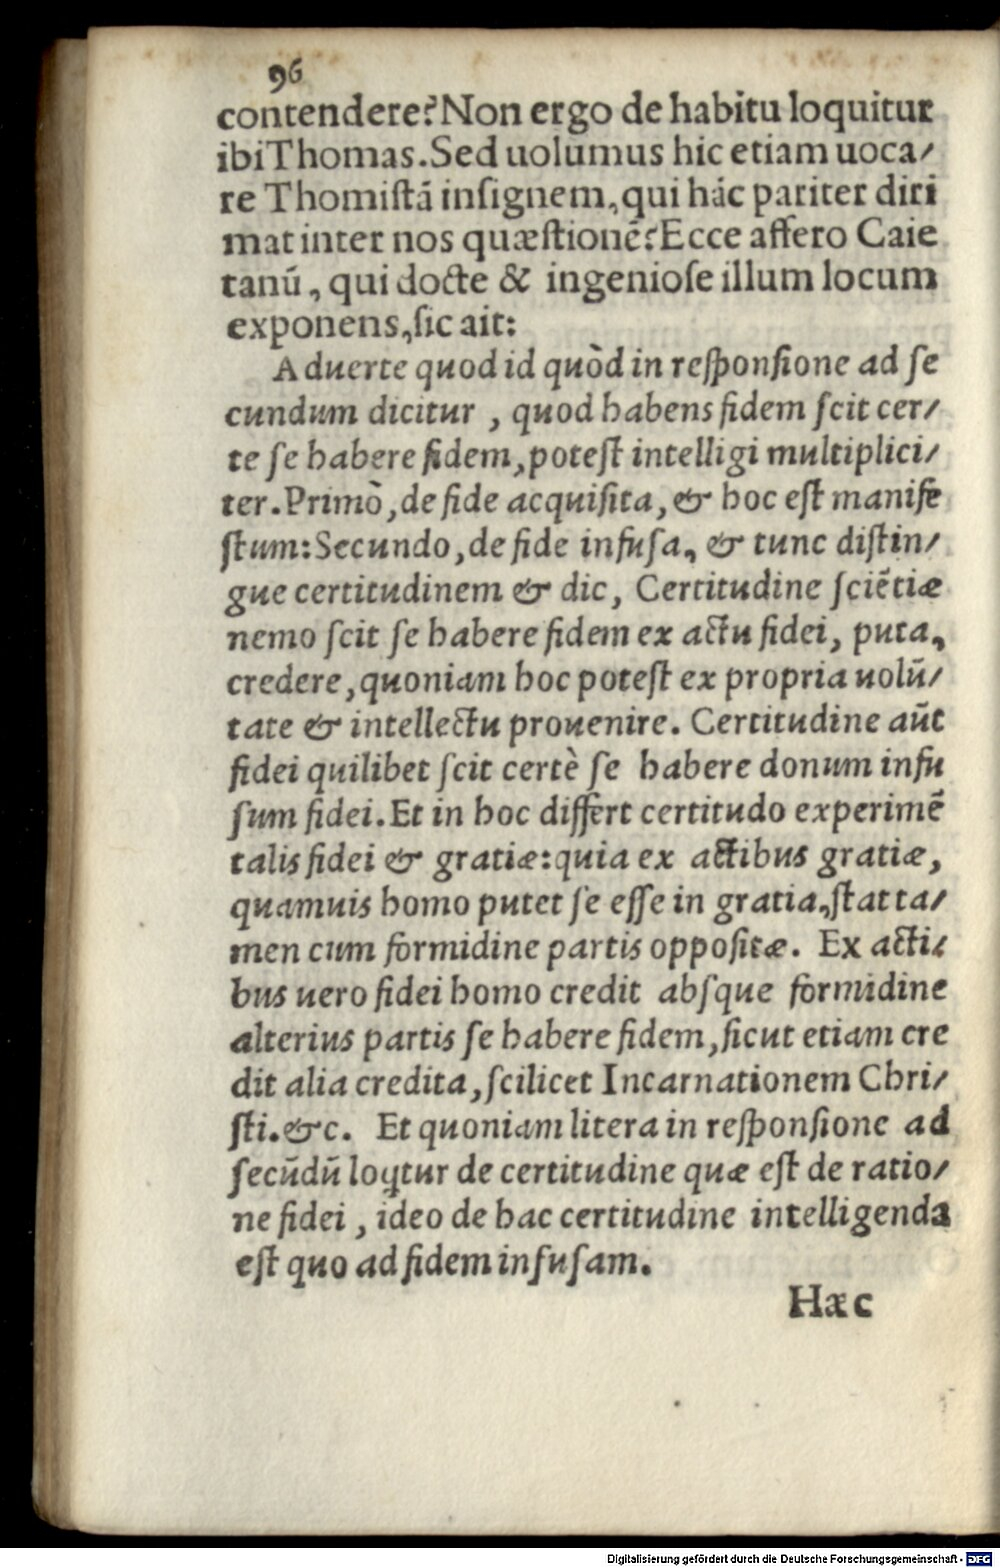 96
contendere? Non ergo de habitu loquitur
ibi Thomas. Sed uolumus hic etiam uoca/
re Thomistã insignem, qui hác pariter diri
mat inter nos quæstionẽ? Ecce affero Caie
tanũ, qui docte & ingeniose illum locum
exponens, sic ait:
Aduerte quod id quòd in responsione ad se
cundum dicitur, quod habens fidem scit cer/
te se habere fidem, potest intelligi multiplici/
ter. Primò, de fide acquisita, & hoc est manife
stum: Secundo, de fide infusa, & tunc distin/
gue certitudinem & dic, Certitudine sciẽtiæ
nemo scit se habere fidem ex actu fidei, puta,
credere, quoniam hoc potest ex propria uolũ/
tate & intellectu prouenire. Certitudine aũt
fidei quilibet scit certè se habere donum infu
sum fidei. Et in hoc differt certitudo experimẽ
talis fidei & gratiæ: quia ex actibus gratiæ,
quamuis homo putet se esse in gratia, stat ta/
men cum formidine partis oppositæ. Ex acti/
bus uero fidei homo credit absque formidine
alterius partis se habere fidem, sicut etiam cre
dit alia credita, scilicet Incarnationem Chri/
sti. &c. Et quoniam litera in responsione ad
secũdũ loꝗtur de certitudine quæ est de ratio/
ne fidei, ideo de hac certitudine intelligenda
est quo ad fidem infusam.
Hæc
Digitalisierung gefördert durch die Deutsche Forschungsgemeinschaft - DFG